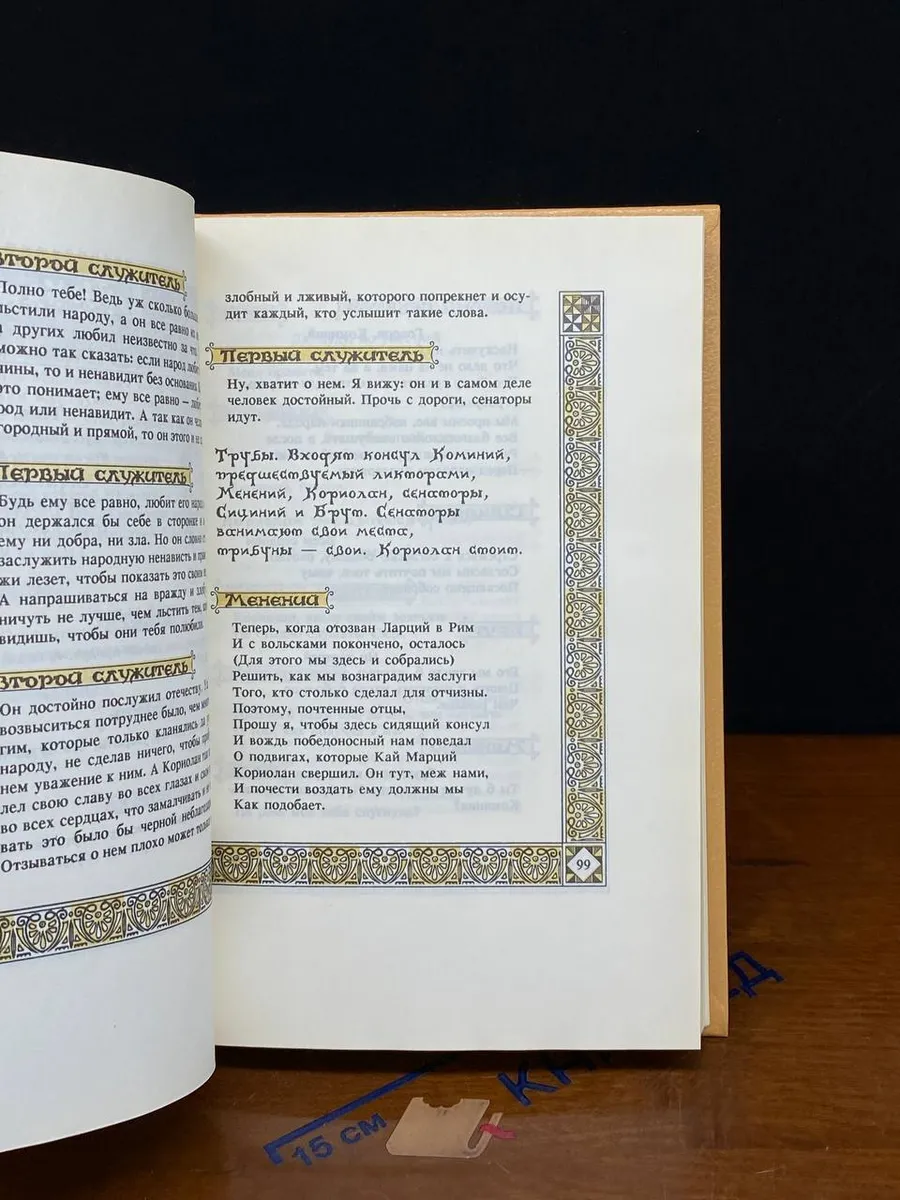 ВТОРОЙ СЛУЖИТЕЛЬ
Полно тебе! Ведь уж сколько
льстили народу, а он все равно
а других любил неизвестно за
можно так сказать: если народ
чины, то и ненавидит без основания.
это понимает; ему все равно –
род или ненавидит. А так как он
городный и прямой, то он этого и не
ПЕРВЫЙ СЛУЖИТЕЛЬ
Будь ему все равно, любит его
он держался бы себе в сторонке и
ему ни добра, ни зла. Но он
заслужить народную ненависть и
жи лезет, чтобы показать это
А напрашиваться на вражду и
ничуть не лучше, чем льстить тем,
видишь, чтобы они тебя полюбили.
ВТОРОЙ СЛУЖИТЕЛЬ
Он достойно послужил отечеству.
возвыситься потруднее было, чем
гим, которые только кланялись да
народу, не сделав ничего, чтобы
нем уважение к ним. А Кориолан
лел свою славу во всех глазах и
во всех сердцах, что замалчивать и
вать это было бы черной
Отзываться о нем плохо может только
злобный и лживый, которого попрекнет и осу-
дит каждый, кто услышит такие слова.
ПЕРВЫЙ СЛУЖИТЕЛЬ
Ну, хватит о нем. Я вижу: он и в самом деле
человек достойный. Прочь с дороги, сенаторы
идут.
Трубы. Входят консул Коминий,
предшествуемый ликторами,
Менений, Кориолан, сенаторы,
Сициний и Брут. Сенаторы
занимают свои места,
трибуны — свои. Кориолан стоит.
МЕНЕНИЙ
Теперь, когда отозван Ларций в Рим
И с вольсками покончено, осталось
(Для этого мы здесь и собрались)
Решить, как мы вознаградим заслуги
Того, кто столько сделал для отчизны.
Поэтому, почтенные отцы,
Прошу я, чтобы здесь сидящий консул
И вождь победоносный нам поведал
О подвигах, которые Кай Марций
Кориолан свершил. Он тут, меж нами,
И почести воздать ему должны мы
Как подобает.
99
15 СМ